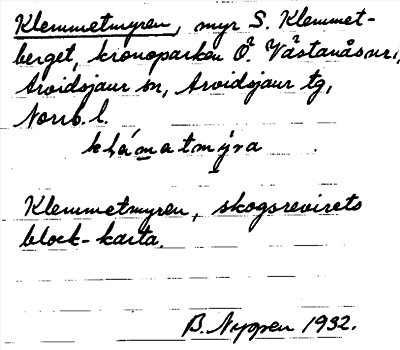 Klemmetmyren, myr S. Klemmet-
berget, kronoparken Ö. Västanåsur,
Arvidsjaur sn, Arvidsjaur tg,
Norrb. l.
klämatmýra
Klemmetmyren, skogsrevirets
block-karta.
B. Nygren 1932.